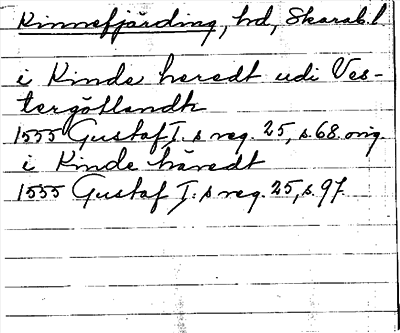 Kinnefjärding, hd, Skarab. l
i Kinde heredt udi Ves-
tergötlandh
1555 Gustaf I:s reg. 25, s. 68. orig.
i Kinde häredt
1555 Gustaf I:s reg. 25, s. 97.